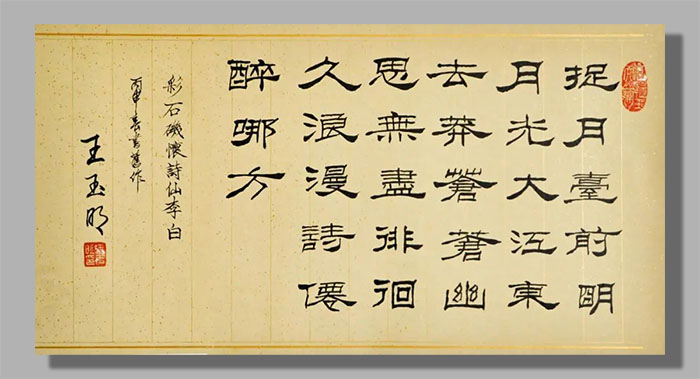 捉月臺前明
月光大江東
去莽蒼蒼幽
思無盡徘徊
久浪漫詩僊
醉哪方
彩石磯懷詩仙李白
丙申春書舊作
王玉明